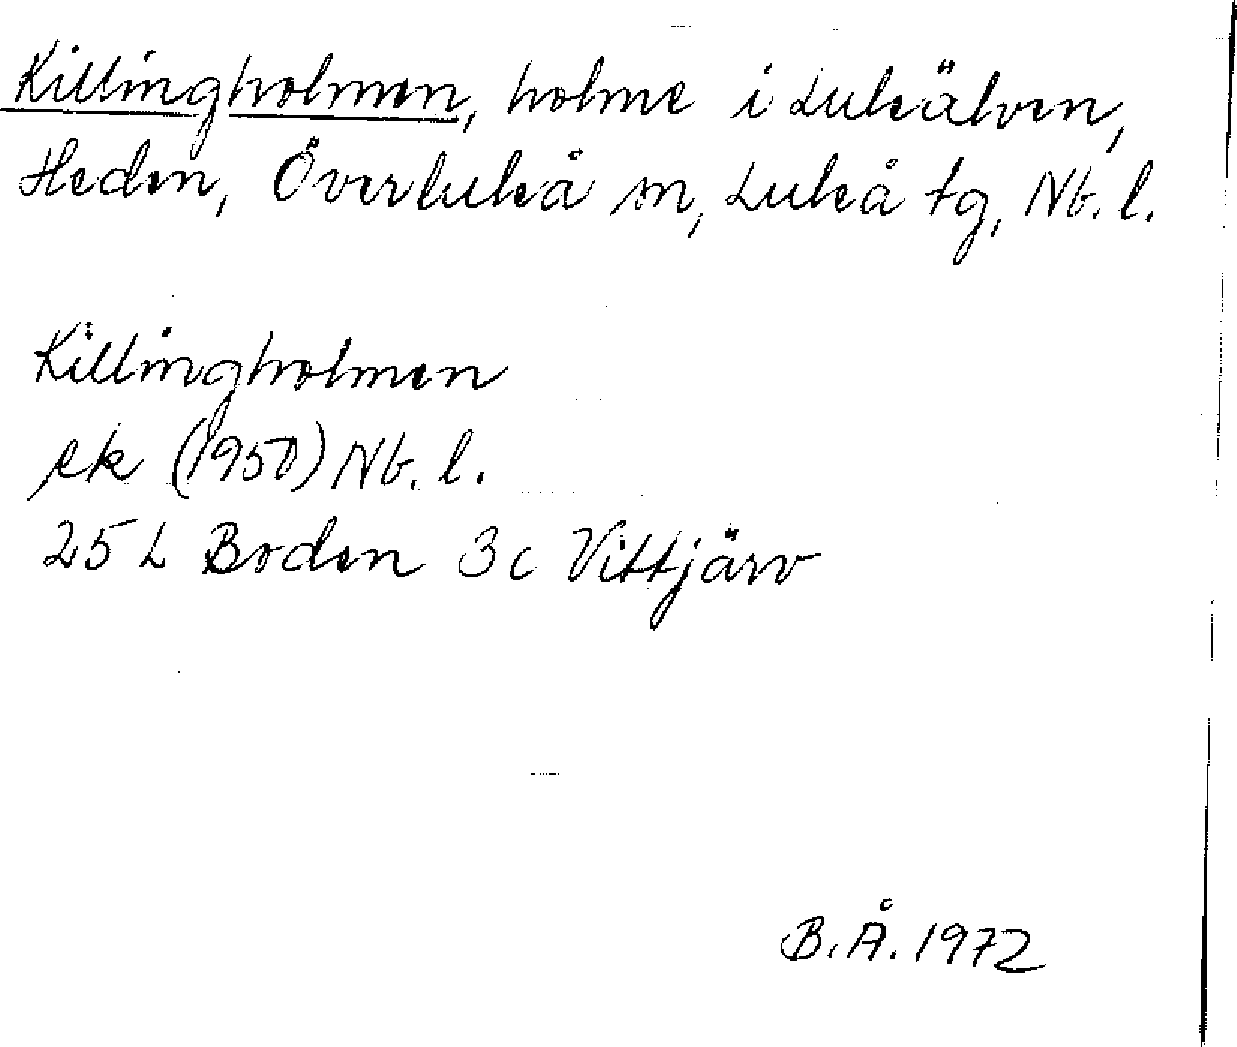 Killingholmen, holme i Luleälven,
Heden, Överluleå sn, Luleå tg, Nb. l.
Killingholmen
ek (1950) Nb. l.
25 L Boden 3c Vittjärv
B.Å. 1972